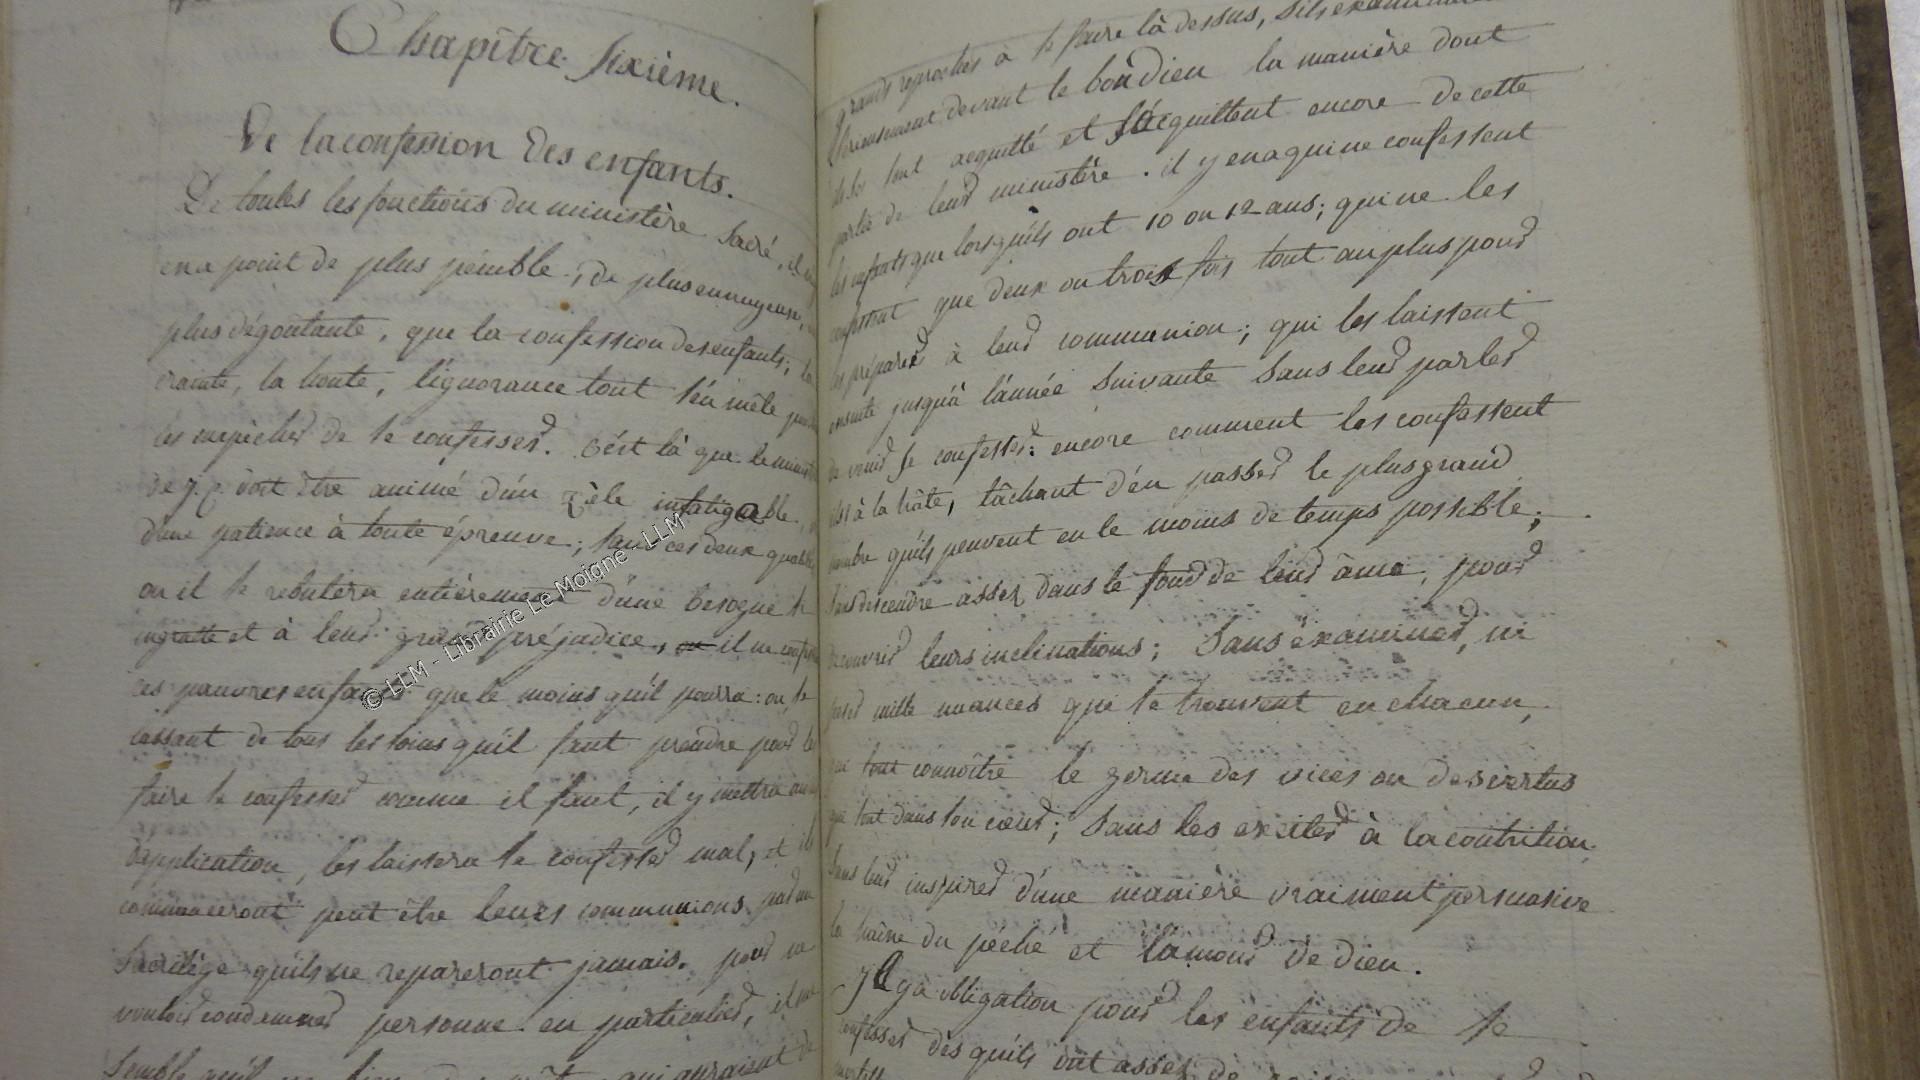 Chapitre Sixième.
De la confession des enfants.
De toutes les fonctions du ministère sacré, il n'y
en a point de plus pénible, de plus ennuyeuse,
plus dégoutante, que la confession des enfants; la
crainte, la honte, l'ignorance tout s'en mêle pour
les empêcher de se confesser. C'est là que le ministre
de J. C. doit être animé d'un zèle infatigable,
d'une patience à toute épreuve; sans ces deux qualités
ou il se rebutera entièrement d'une besogne si
ingratte et à leur grand préjudice, ou il ne confessera
ces pauvres enfants que le moins qu'il pourra: ou, se
lassant de tous les soins qu'il faut prendre pour les
faire se confesser comme il faut, il y mettra moins
d'application, les laissera se confesser mal, et ils
commenceront peut être leurs communions par un
Sacrilège qu'ils ne repareront jamais. pour ne
vouloir condamner personne en particulier, il me
semble qu'il y a bien des prêtres qui auraient de
grands reproches à se faire là dessus, s'ils examinaient
sérieusement devant le bon Dieu la manière dont
ils se sont acquitté et s'acquittent encore de cette
partie de leur ministère. il y en a qui ne confessent
les enfants que lorsqu'ils ont 10 ou 12 ans; qui ne les
confessent que deux ou trois fois tout au plus pour
les préparer à leur communion; qui les laissent
ensuite jusqu'à l'année suivante sans leur parler
de venir se confesser: encore comment les confessent
ils! à la hâte, tâchant d'en passer le plus grand
nombre qu'ils peuvent en le moins de temps possible;
sans descendre assez dans le fond de leur âme, pour
découvrir leurs inclinations; Sans examiner, ni
peser mille nuances qui se trouvent en chacun,
qui font connoître le germe des vices ou des vertus
qui sont dans son cœur; Sans les exciter à la contrition,
sans leur inspirer d'une manière vraiment persuasive
la haine du péché et l'amour de dieu.
Il y a obligation pour les enfants de se
confesser dès qu'ils ont assez de
© LLM - Librairie Le Moigne - LLM